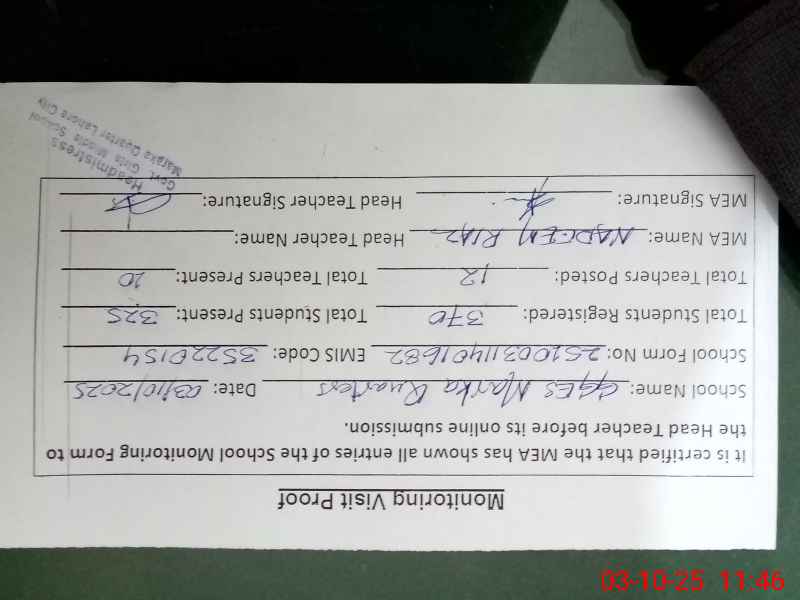 Monitoring Visit Proof
It is certified that the MEA has shown all entries of the School Monitoring Form to
the Head Teacher before its online submission.
School Name: GGES Marika Quarters Date: 03/10/2025
School Form No: 2510031140 1682 EMIS Code: 35220154
Total Students Registered: 370 Total Students Present: 325
Total Teachers Posted: 12 Total Teachers Present: 10
MEA Name: NADEEM RIAZ Head Teacher Name:
MEA Signature: Head Teacher Signature:
Headmistress
Govt. Girls Middle School
Maraka Quarter Lahore City
03-10-25 11:46